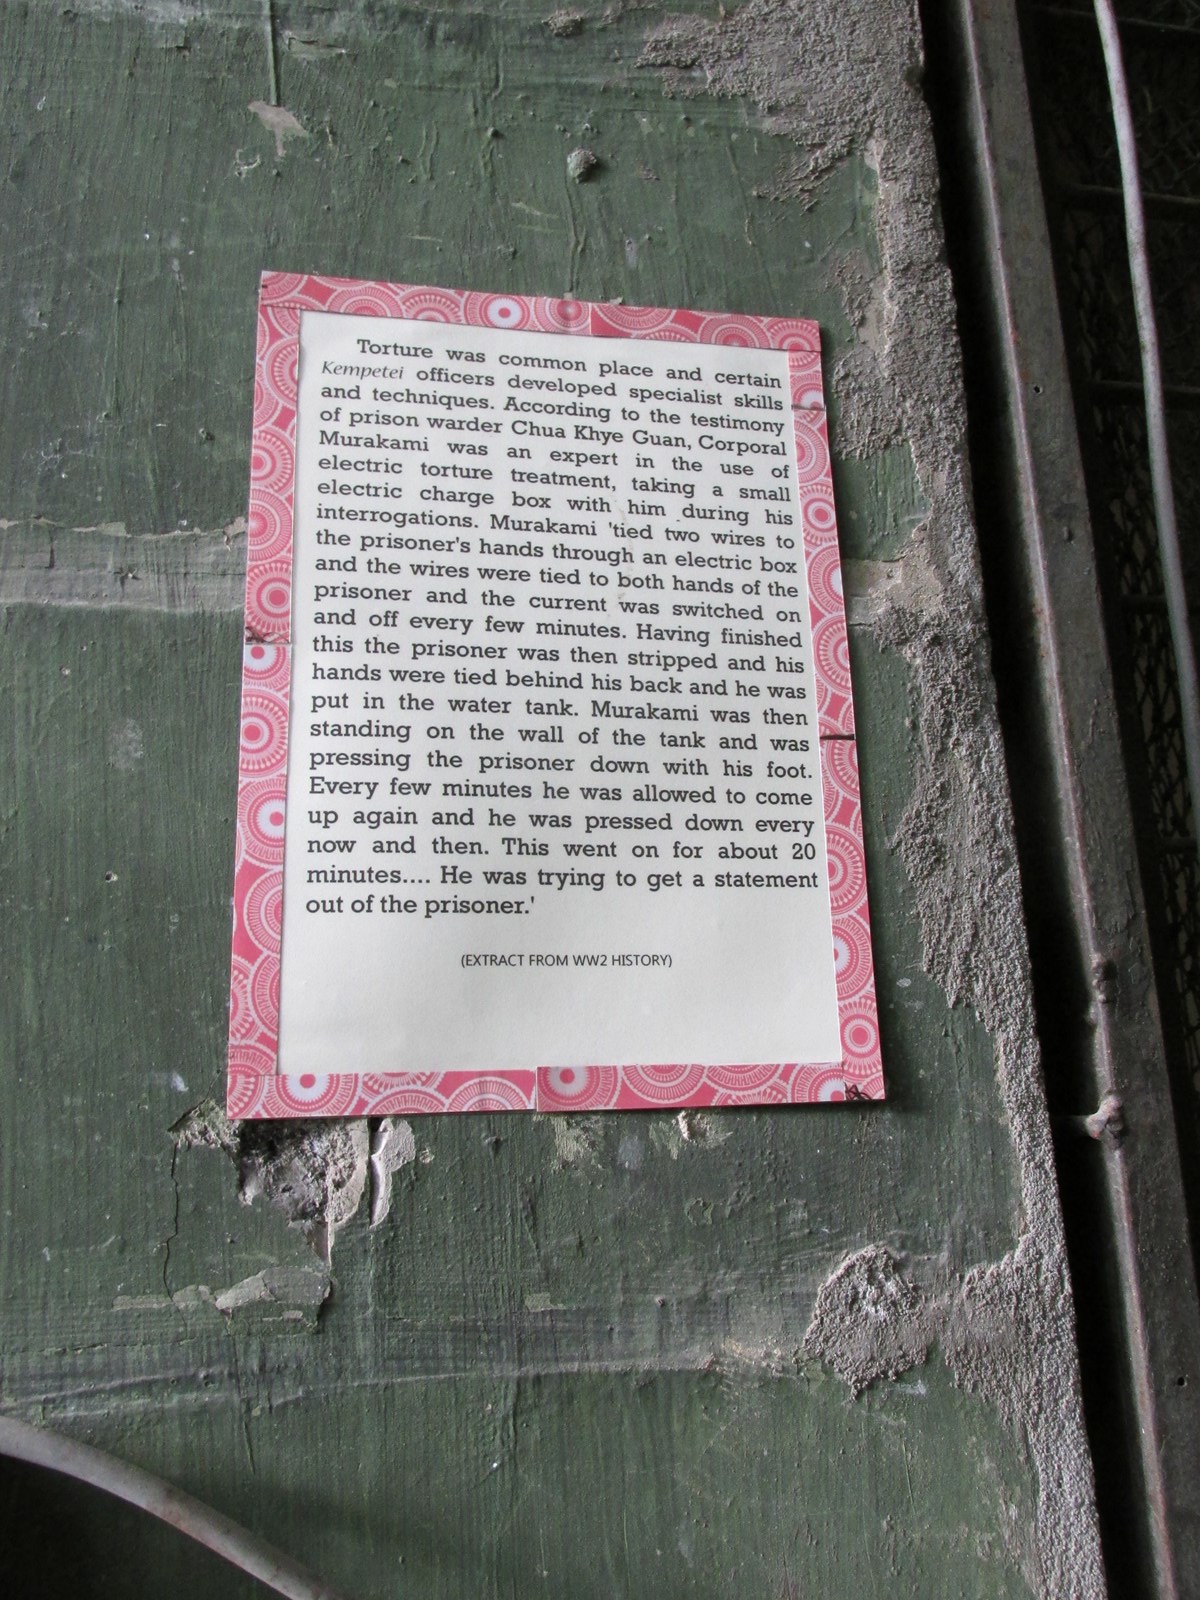 Torture was common place and certain
Kempetei officers developed specialist skills
and techniques. According to the testimony
of prison warder Chua Khye Guan, Corporal
Murakami was an expert in the use of
electric torture treatment, taking a small
electric charge box with him during his
interrogations. Murakami 'tied two wires to
the prisoner's hands through an electric box
and the wires were tied to both hands of the
prisoner and the current was switched on
and off every few minutes. Having finished
this the prisoner was then stripped and his
hands were tied behind his back and he was
put in the water tank. Murakami was then
standing on the wall of the tank and was
pressing the prisoner down with his foot.
Every few minutes he was allowed to come
up again and he was pressed down every
now and then. This went on for about 20
minutes.... He was trying to get a statement
out of the prisoner.'
(EXTRACT FROM WW2 HISTORY)